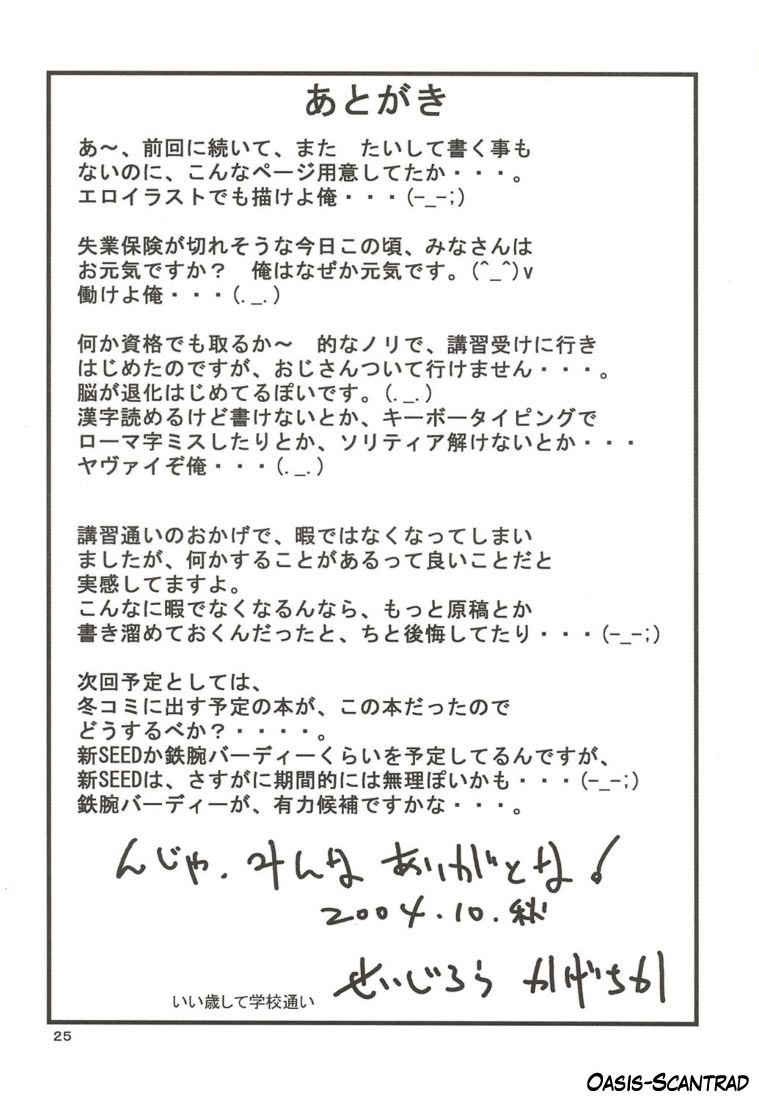 あとがき
あ～、前回に続いて、また　たいして書く事も
ないのに、こんなページ用意してたか・・・。
エロイラストでも描けよ俺・・・(-_-;)
失業保険が切れそうな今日この頃、みなさんは
お元気ですか？　俺はなぜか元気です。(^_^)v
働けよ俺・・・(._.)
何か資格でも取るか～　的なノリで、講習受けに行き
はじめたのですが、おじさんついて行けません・・・。
脳が退化はじめてるぽいです。(._.)
漢字読めるけど書けないとか、キーボータイピングで
ローマ字ミスしたりとか、ソリティア解けないとか・・・
ヤヴァイぞ俺・・・(._.)
講習通いのおかげで、暇ではなくなってしまい
ましたが、何かすることがあるって良いことだと
実感してますよ。
こんなに暇でなくなるんなら、もっと原稿とか
書き溜めておくんだったと、ちと後悔してたり・・・(-_-;)
次回予定としては、
冬コミに出す予定の本が、この本だったので
どうするべか？・・・・。
新SEEDか鉄腕バーディーくらいを予定してるんですが、
新SEEDは、さすがに期間的には無理ぽいかも・・・(-_-;)
鉄腕バーディーが、有力候補ですかな・・・。
んじゃ．みんな ありがとな！
2004.10.秋
せいじろう かげちか
いい歳して学校通い
25
OASIS-SCANTRAD